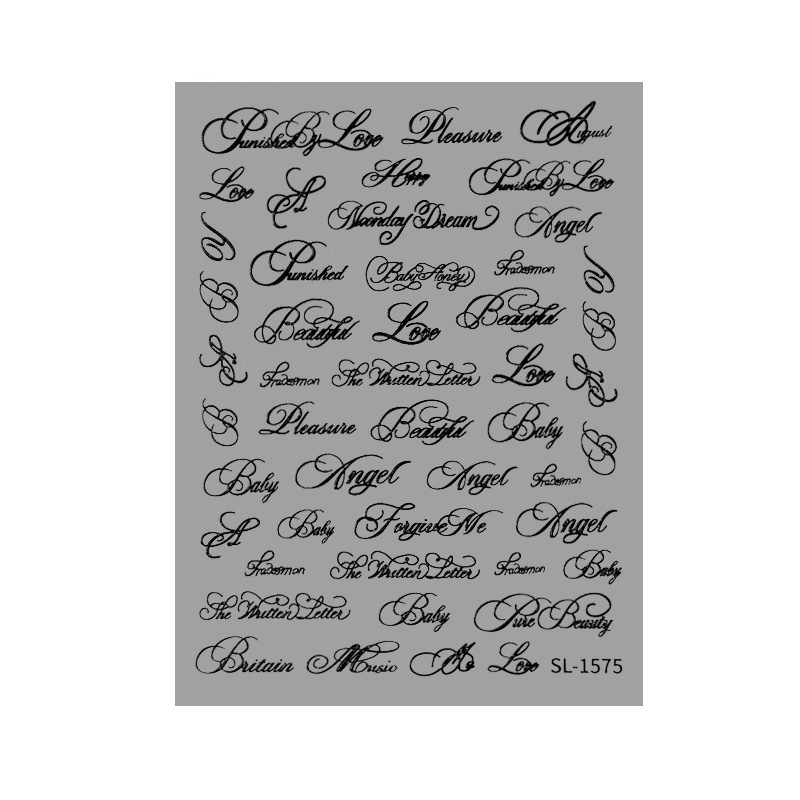 Punished By Love Pleasure August
Love A Punished By Love
Noonday Dream Angel
Y Punished Baby Honey Tradesman Y
B Beautiful Love Beautiful B
A Tradesman The Written Letter Love A
B Pleasure Beautiful Baby B
Baby Angel Angel Tradesman
A Baby Forgive Me Angel
Tradesman The Written Letter Tradesman Baby
The Written Letter Baby Pure Beauty
Britain Music Love SL-1575